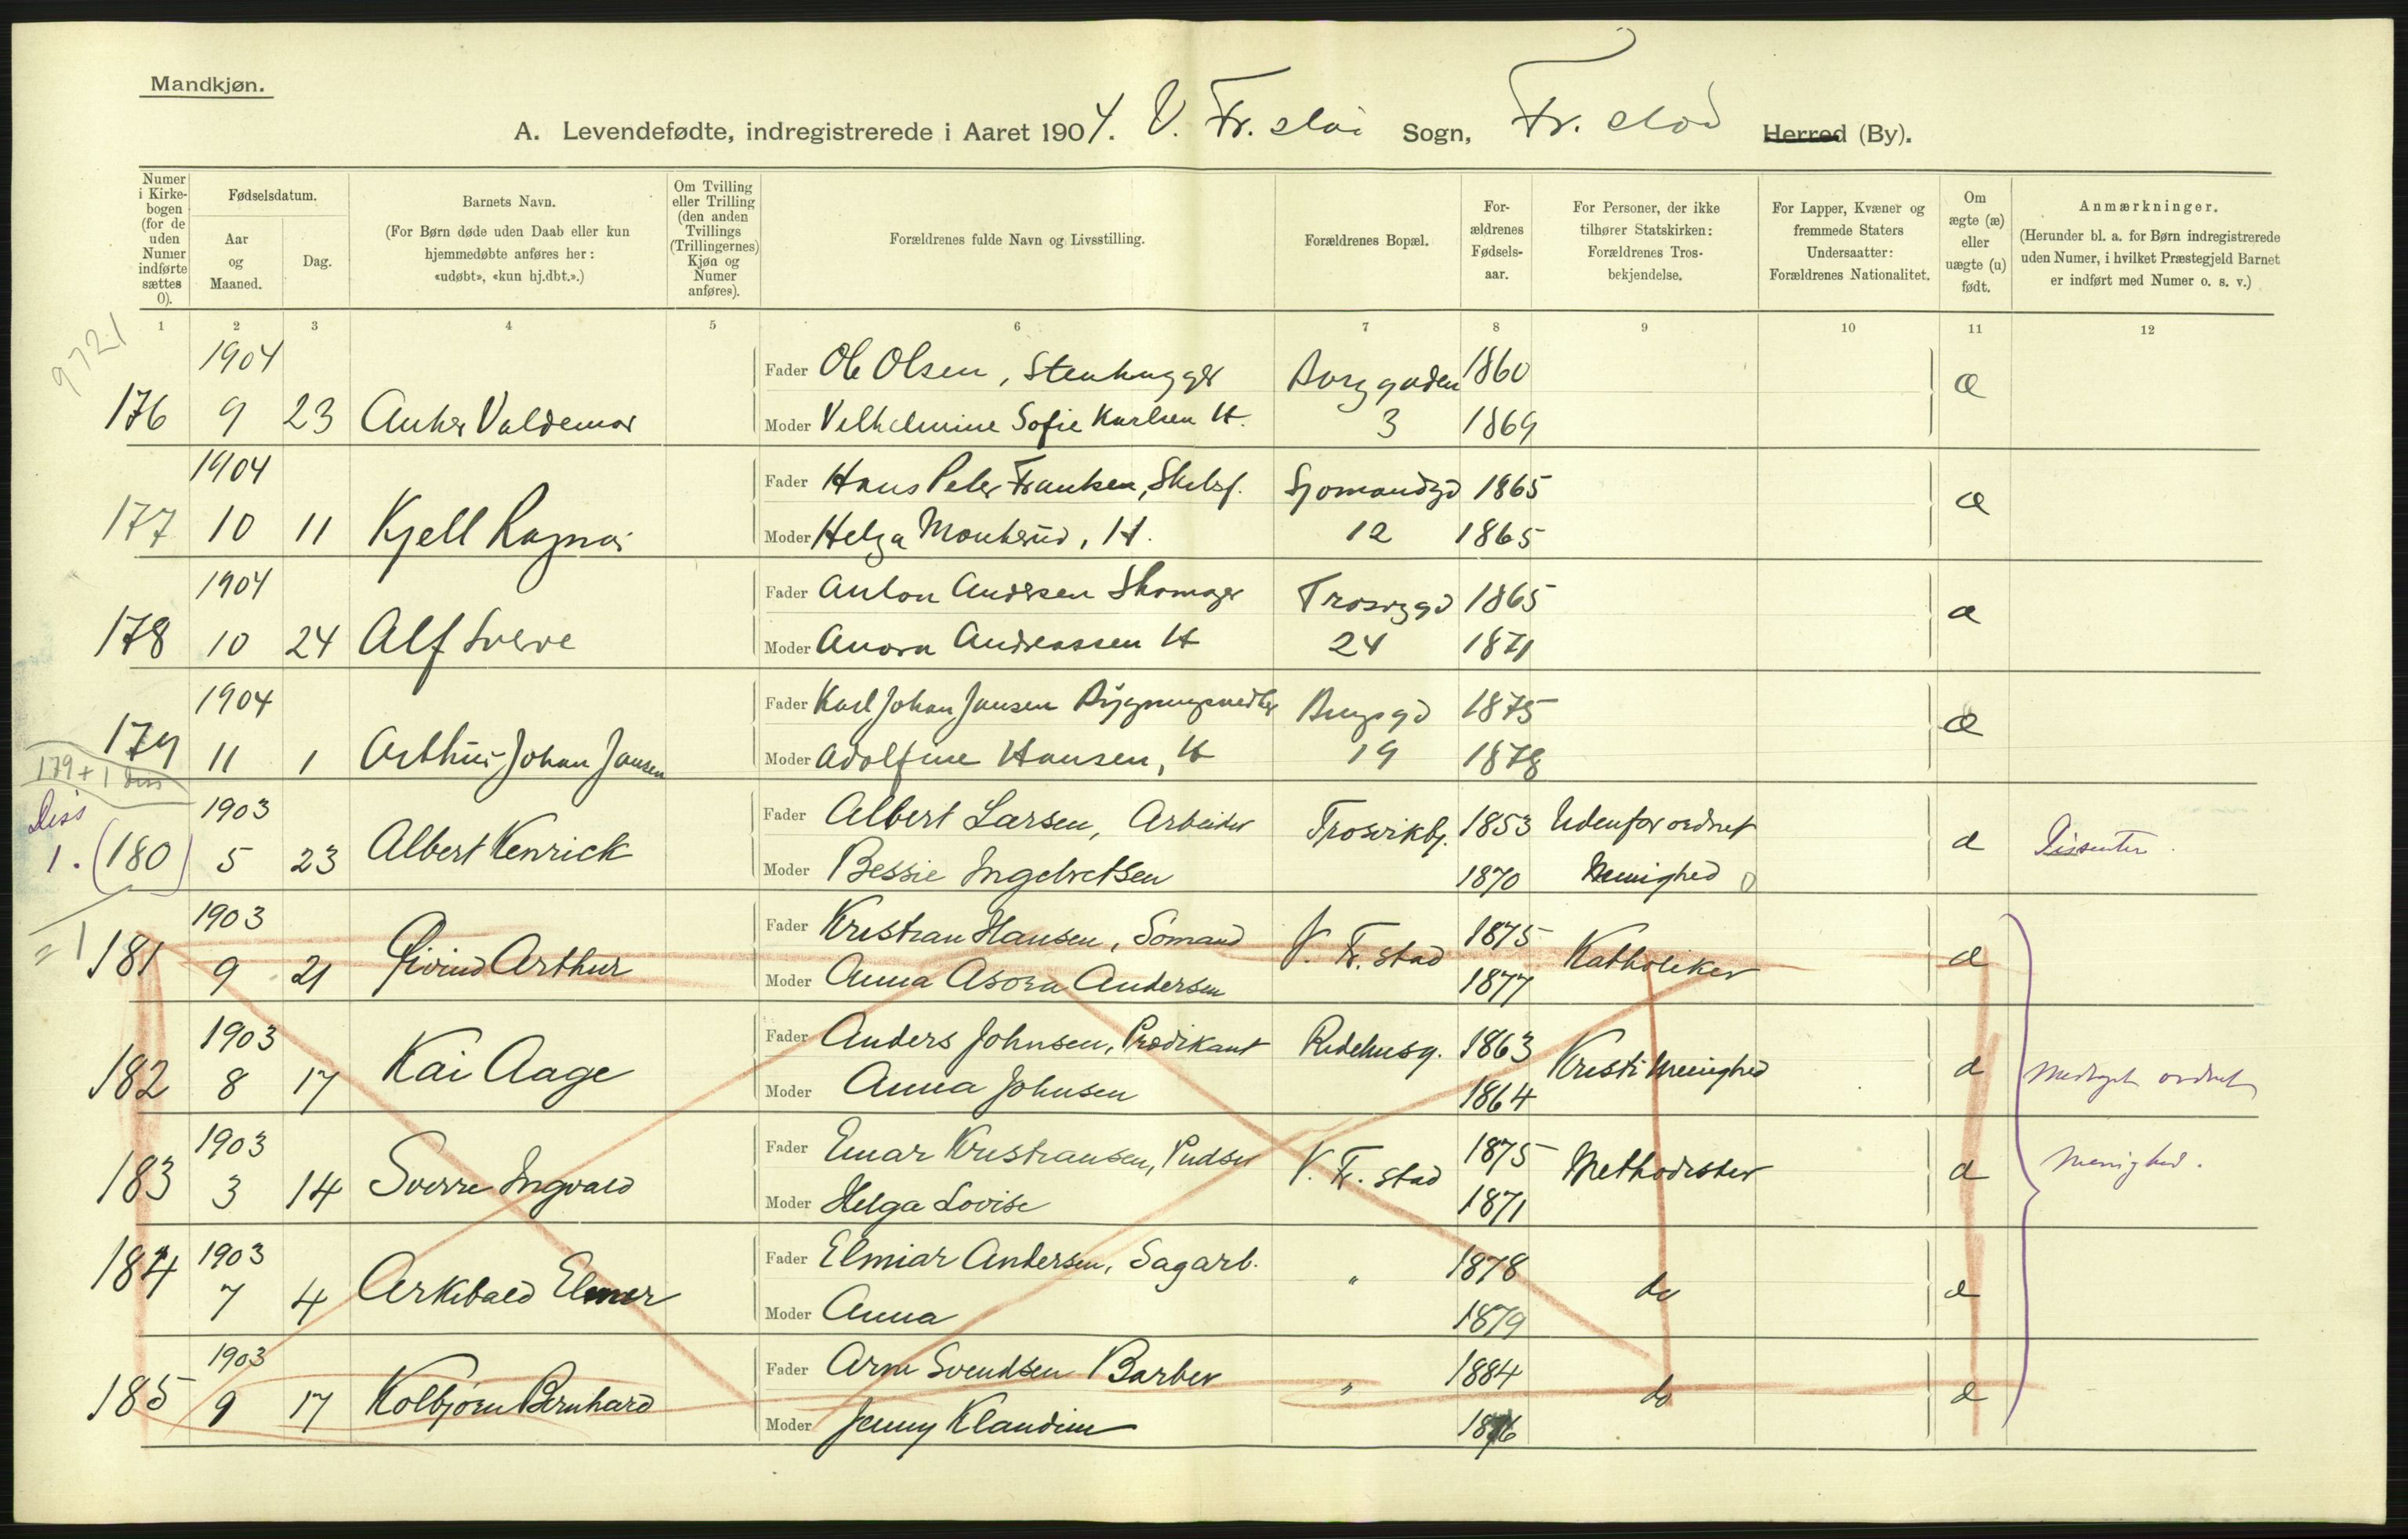 Mandkjøn.
A. Levendefødte, indregistrerede i Aaret 1904. V. Fr.stad Sogn, Fr.stad Herred (By).
Numer i Kirkebogen (for de uden Numer indførte sættes 0).
Fødselsdatum.
Aar og Maaned.
Dag.
Barnets Navn.
(For Børn døde uden Daab eller kun hjemmedøbte anføres her: «udøbt», «kun hj.dbt.».)
Om Tvilling eller Trilling (den anden Tvillings (Trillingernes) Kjøn og Numer anføres).
Forældrenes fulde Navn og Livsstilling.
Forældrenes Bopæl.
Forældrenes Fødselsaar.
For Personer, der ikke tilhører Statskirken: Forældrenes Trosbekjendelse.
For Lapper, Kvæner og fremmede Staters Undersaatter: Forældrenes Nationalitet.
Om ægte (æ) eller uægte (u) født.
Anmærkninger.
(Herunder bl. a. for Børn indregistrerede uden Numer, i hvilket Præstegjeld Barnet er indført med Numer o. s. v.)
1 2 3 4 5 6 7 8 9 10 11 12
9721
1904 Fader Ole Olsen, Stenhugger Borggaden 1860 æ
176 9 23 Anker Valdemar Moder Vilhelmine Sofie Karlsen H. 3 1869
1904 Fader Hans Peter Franksen, Sjomandgd 1865 æ
177 10 11 Kjell Ragnar Moder Helga H. 12 1865
1904 Fader Anton Andersen Skomager Trosvggd 1865 æ
178 10 24 Alf Sverre Moder Andreassen H 24 1871
1904 Fader Karl Johan Jansen 1875 æ
179 11 1 Arthur Johan Jansen Moder Adolfine Hansen, H 19 1878
179 + 1 diss
Diss 1903 Fader Albert Larsen, Arbeider Trosvikbg. 1853 Udenfor ordnet æ Dissenter.
1. (180) 5 23 Albert Kenrick Moder Bessie Ingebretsen 1870 Menighed
= 1
1903 Fader Kristian Hansen, Sømand V. Fr.stad 1875 Katholiker æ
181 9 21 Øivind Arthur Moder Anna Asora Andersen 1877
1903 Fader Anders Johnsen, Prædikant Ridehusg. 1863 Kristi Menighed æ ordnet
182 8 17 Kai Aage Moder Anna Johnsen 1864
1903 Fader Einar Kristiansen, Pudser V. Fr.stad 1875 Methodister æ Menighed.
183 3 14 Sverre Ingvald Moder Helga Lovise 1871
1903 Fader Elmiar Andersen, Sagarb. " 1878 do æ
184 7 4 Arkibald Elmer Moder Anna 1879
1903 Fader Arne Svendsen Barber " 1884 do æ
185 9 17 Kolbjørn Bernhard Moder Jenny Klaudine